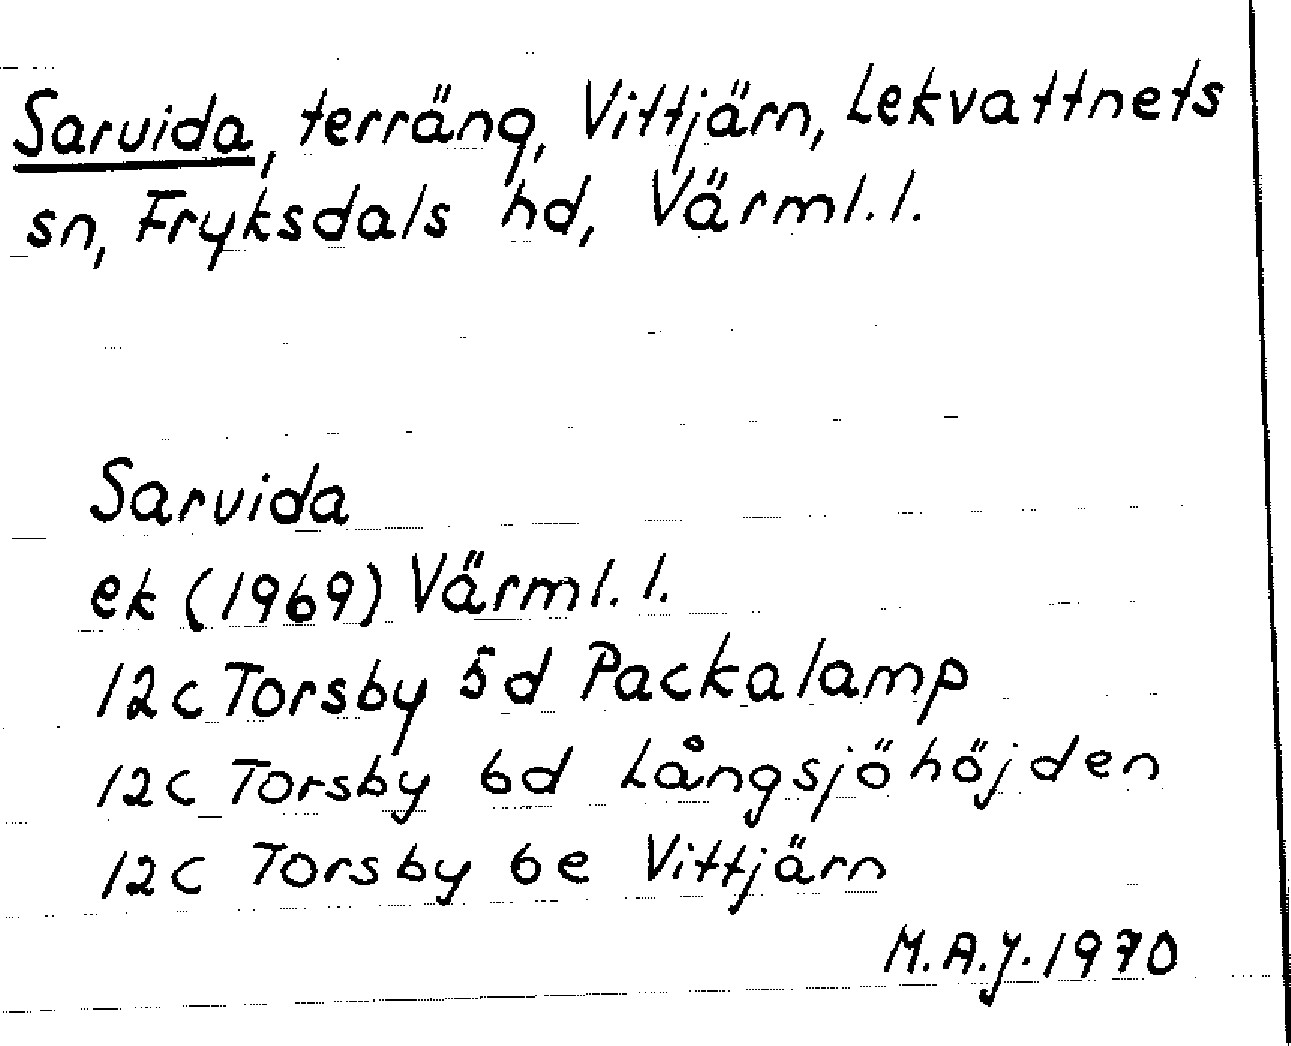 Sarvida, terräng, Vittjärn, Lekvattnets
sn, Fryksdals hd, Värml. l.
Sarvida
ek (1969) Värml. l.
12c Torsby 5d Packalamp
12c Torsby 6d Långsjöhöjden
12c Torsby 6e Vittjärn
M.A.J. 1970